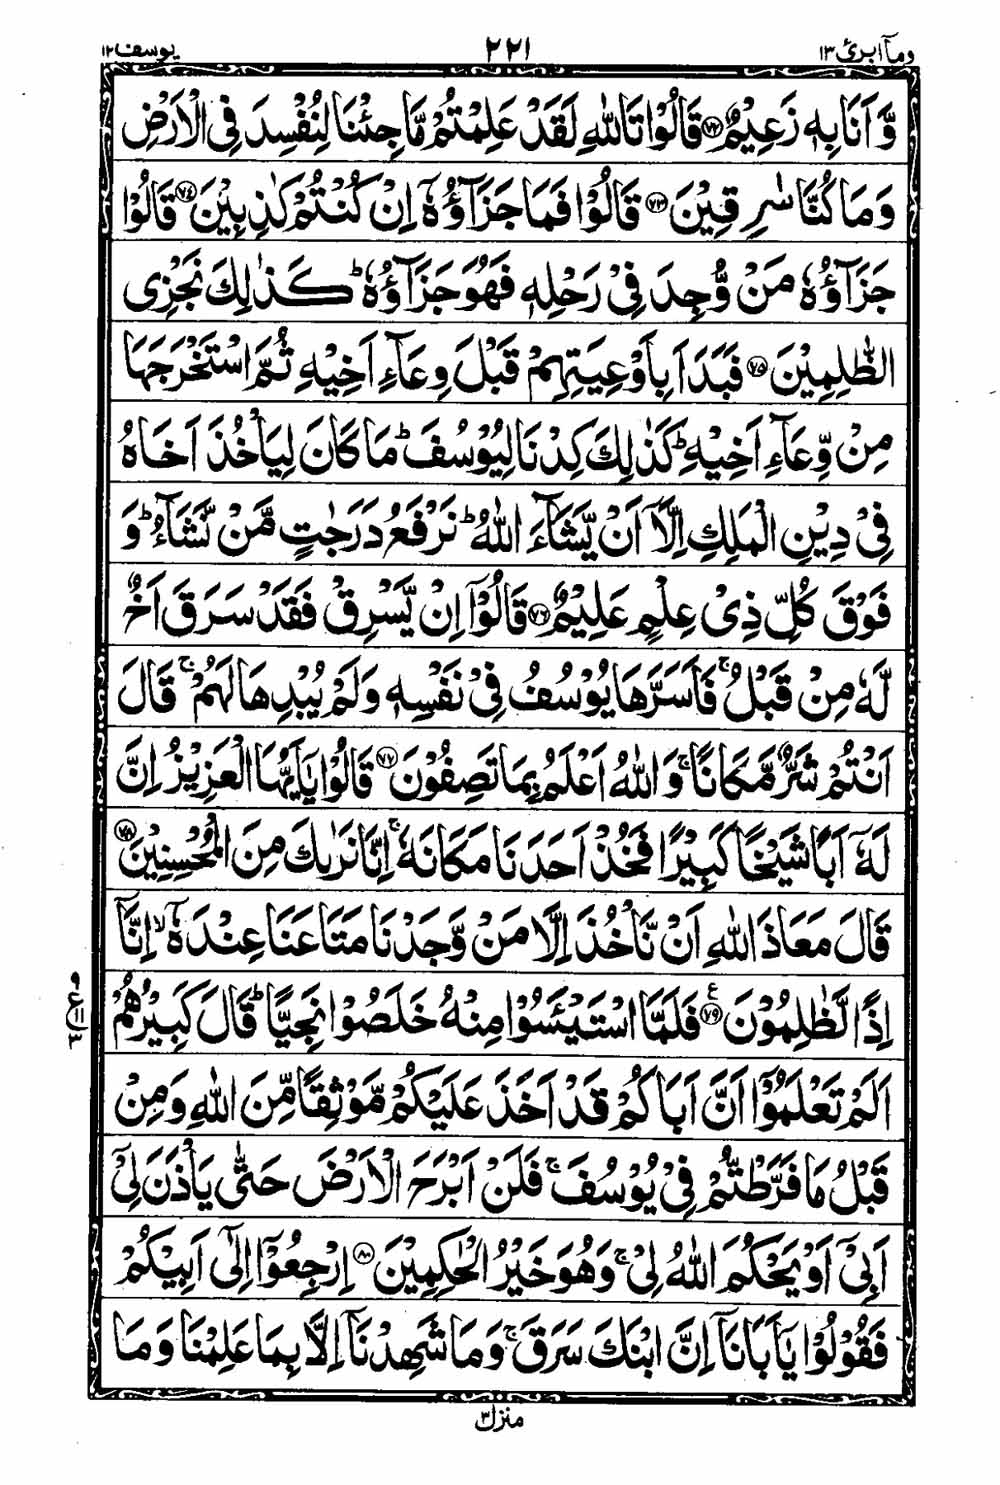 وما ابرئ ١٣ ٢٢١ يوسف ١٢
وَّ اَنَا بِهٖ زَعِيْمٌ ﴿۷۲﴾ قَالُوْا تَاللّٰهِ لَقَدْ عَلِمْتُمْ مَّا جِئْنَا لِنُفْسِدَ فِى الْاَرْضِ
وَمَا كُنَّا سٰرِقِيْنَ ﴿۷۳﴾ قَالُوْا فَمَا جَزَآؤُهٗۤ اِنْ كُنْتُمْ كٰذِبِيْنَ ﴿۷۴﴾ قَالُوْا
جَزَآؤُهٗ مَنْ وُّجِدَ فِىْ رَحْلِهٖ فَهُوَ جَزَآؤُهٗ ؕ كَذٰلِكَ نَجْزِى
الظّٰلِمِيْنَ ﴿۷۵﴾ فَبَدَاَ بِاَوْعِيَتِهِمْ قَبْلَ وِعَآءِ اَخِيْهِ ثُمَّ اسْتَخْرَجَهَا
مِنْ وِّعَآءِ اَخِيْهِ ؕ كَذٰلِكَ كِدْنَا لِيُوْسُفَ ؕ مَا كَانَ لِيَاْخُذَ اَخَاهُ
فِىْ دِيْنِ الْمَلِكِ اِلَّاۤ اَنْ يَّشَآءَ اللّٰهُ ؕ نَرْفَعُ دَرَجٰتٍ مَّنْ نَّشَآءُ ؕ وَ
فَوْقَ كُلِّ ذِىْ عِلْمٍ عَلِيْمٌ ﴿۷۶﴾ قَالُوْۤا اِنْ يَّسْرِقْ فَقَدْ سَرَقَ اَخٌ
لَّهٗ مِنْ قَبْلُ ۚ فَاَسَرَّهَا يُوْسُفُ فِىْ نَفْسِهٖ وَلَمْ يُبْدِهَا لَهُمْ ۚ قَالَ
اَنْتُمْ شَرٌّ مَّكَانًا ۚ وَاللّٰهُ اَعْلَمُ بِمَا تَصِفُوْنَ ﴿۷۷﴾ قَالُوْا يٰۤاَيُّهَا الْعَزِيْزُ اِنَّ
لَهٗۤ اَبًا شَيْخًا كَبِيْرًا فَخُذْ اَحَدَنَا مَكَانَهٗ ۚ اِنَّا نَرٰىكَ مِنَ الْمُحْسِنِيْنَ ﴿۷۸﴾
قَالَ مَعَاذَ اللّٰهِ اَنْ نَّاْخُذَ اِلَّا مَنْ وَّجَدْنَا مَتَاعَنَا عِنْدَهٗۤ ۙ اِنَّاۤ
اِذًا لَّظٰلِمُوْنَ ﴿۷۹﴾ ع فَلَمَّا اسْتَيْئَسُوْا مِنْهُ خَلَصُوْا نَجِيًّا ؕ قَالَ كَبِيْرُهُمْ
اَلَمْ تَعْلَمُوْۤا اَنَّ اَبَاكُمْ قَدْ اَخَذَ عَلَيْكُمْ مَّوْثِقًا مِّنَ اللّٰهِ وَمِنْ
قَبْلُ مَا فَرَّطْتُّمْ فِىْ يُوْسُفَ ۚ فَلَنْ اَبْرَحَ الْاَرْضَ حَتّٰى يَاْذَنَ لِىْۤ
اَبِىْۤ اَوْ يَحْكُمَ اللّٰهُ لِىْ ۚ وَهُوَ خَيْرُ الْحٰكِمِيْنَ ﴿۸۰﴾ اِرْجِعُوْۤا اِلٰۤى اَبِيْكُمْ
فَقُوْلُوْا يٰۤاَبَانَاۤ اِنَّ ابْنَكَ سَرَقَ ۚ وَمَا شَهِدْنَاۤ اِلَّا بِمَا عَلِمْنَا وَمَا
منزل ۳